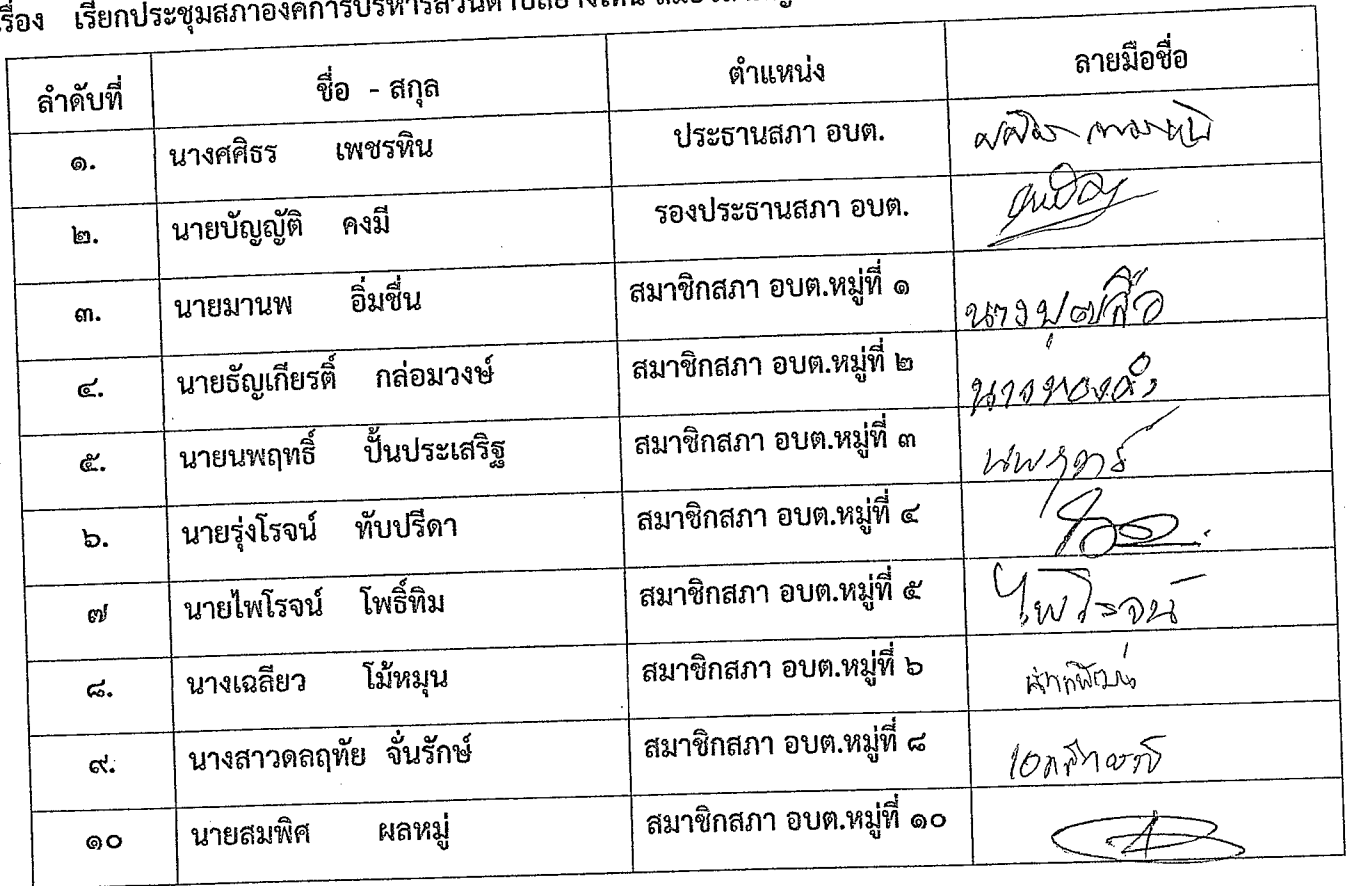 เรื่อง เรียกประชุมสภาองค์การบริหารส่วนตำบล
ลำดับที่ ชื่อ - สกุล ตำแหน่ง ลายมือชื่อ
๑. นางศศิธร เพชรหิน ประธานสภา อบต.
๒. นายบัญญัติ คงมี รองประธานสภา อบต.
๓. นายมานพ อิ่มชื่น สมาชิกสภา อบต.หมู่ที่ ๑
๔. นายธัญเกียรติ์ กล่อมวงษ์ สมาชิกสภา อบต.หมู่ที่ ๒
๕. นายนพฤทธิ์ ปั้นประเสริฐ สมาชิกสภา อบต.หมู่ที่ ๓
๖. นายรุ่งโรจน์ ทับปรีดา สมาชิกสภา อบต.หมู่ที่ ๔
๗ นายไพโรจน์ โพธิ์ทิม สมาชิกสภา อบต.หมู่ที่ ๕ ไพโรจน์
๘. นางเฉลียว โม้หมุน สมาชิกสภา อบต.หมู่ที่ ๖
๙. นางสาวดลฤทัย จั่นรักษ์ สมาชิกสภา อบต.หมู่ที่ ๘
๑๐ นายสมพิศ ผลหมู่ สมาชิกสภา อบต.หมู่ที่ ๑๐